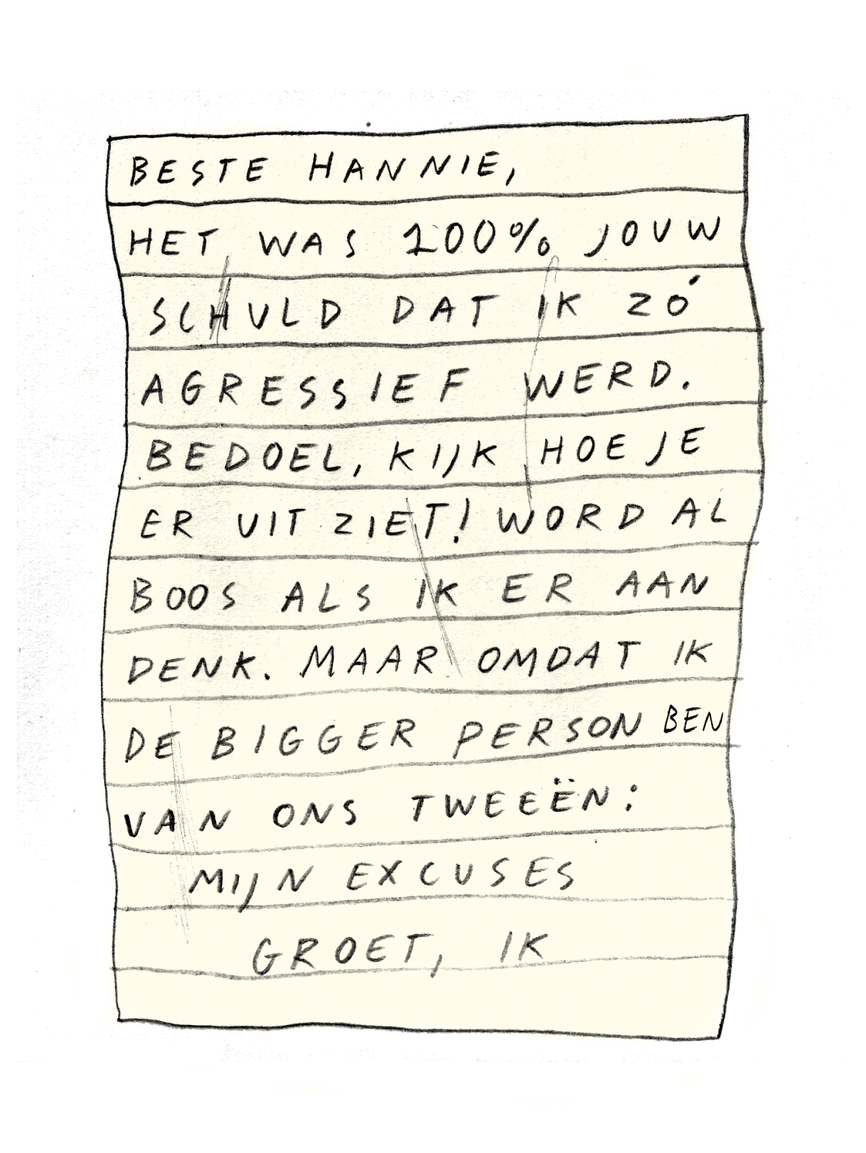 BESTE HANNIE,
HET WAS 100% JOUW
SCHULD DAT IK ZÓ
AGRESSIEF WERD.
BEDOEL, KIJK HOE JE
ER UIT ZIET! WORD AL
BOOS ALS IK ER AAN
DENK. MAAR OMDAT IK
DE BIGGER PERSON BEN
VAN ONS TWEEËN:
MIJN EXCUSES
GROET, IK